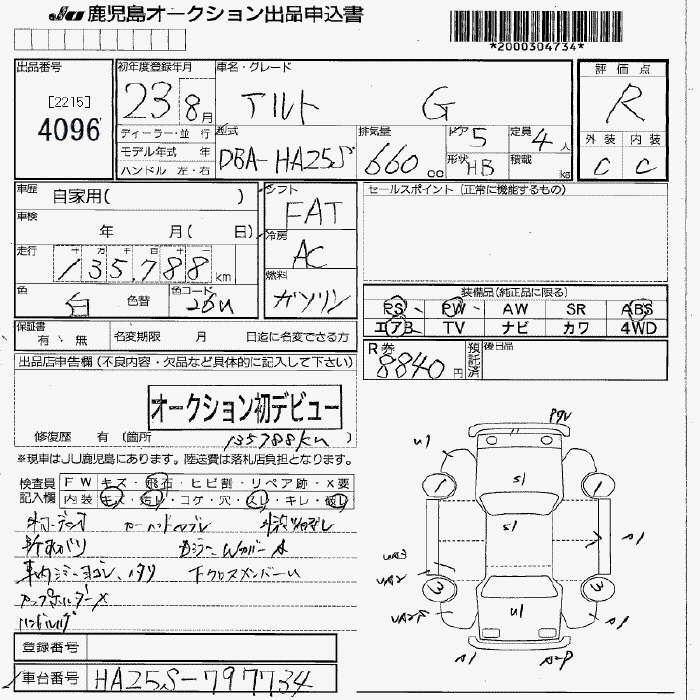 JU 鹿児島オークション出品申込書
*2000304734*
出品番号
[2215]
4096
初年度登録年月
23 8月
車名・グレード
アルト G
評価点
R
ディーラー・並 行
モデル年式 年
ハンドル 左・右
型式
DBA-HA25S
排気量
660 cc
ドア 5
定員 4 人
形状 HB
積載 kg
外装 内装
C C
車歴
自家用( )
車検
年 月( 日)
走行
135,788 km
色
白
色替
色コード
26U
シフト
FAT
冷房
AC
燃料
ガソリン
セールスポイント (正常に機能するもの)
装備品(純正品に限る)
PS PW AW SR ABS
エアB TV ナビ カワ 4WD
保証書
有 ・ 無
名変期限 月 日迄に名変できる方
R券
8840円
預託済
後日品
出品店申告欄(不良内容・欠品など具体的に記入して下さい)
オークション初デビュー
修復歴 有 (箇所 135788km )
※現車はJU鹿児島にあります。陸送費は落札店負担となります。
検査員記入欄
FW キズ・飛石・ヒビ割・リペア跡・X要
内装 キズ・汚レ・コゲ・穴・スレ・キレ・傷レ
車内シミ・ヨゴレ、
下クロスメンバーU
U1
S1
S1
1
1
A1
UA3
UA2
3
3
U1
A1
A1
登録番号
車台番号
HA25S-797734